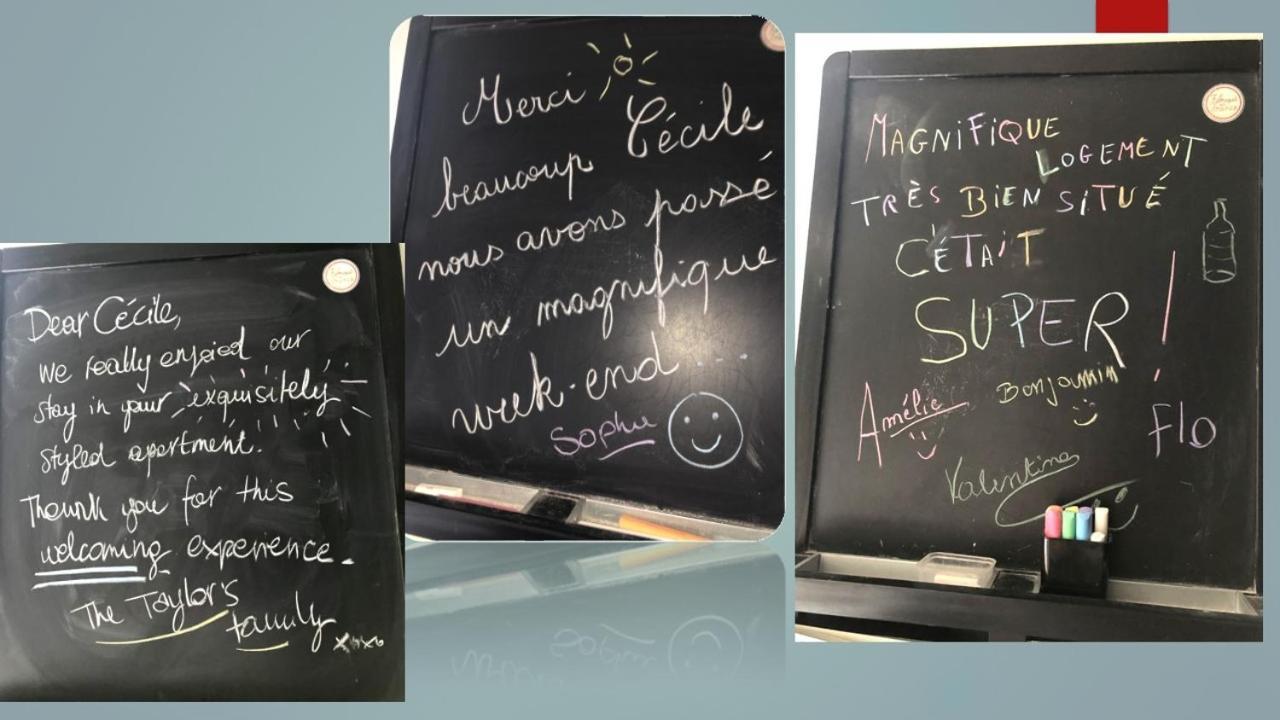 Dear Cécile,
we really enjoied our
stay in your exquisitely
styled apartment.
Thank you for this
welcoming experience.
The Taylor's
family
xoxo
Merci
Cécile
beaucoup
nous avons passé
un magnifique
week-end....
Sophie
MAGNiFiQUE
LOGEMENT
TRÈS BiEN SiTUÉ
C'ÉTAiT
SUPER !
Amélie
Benjamin
Flo
Valentine